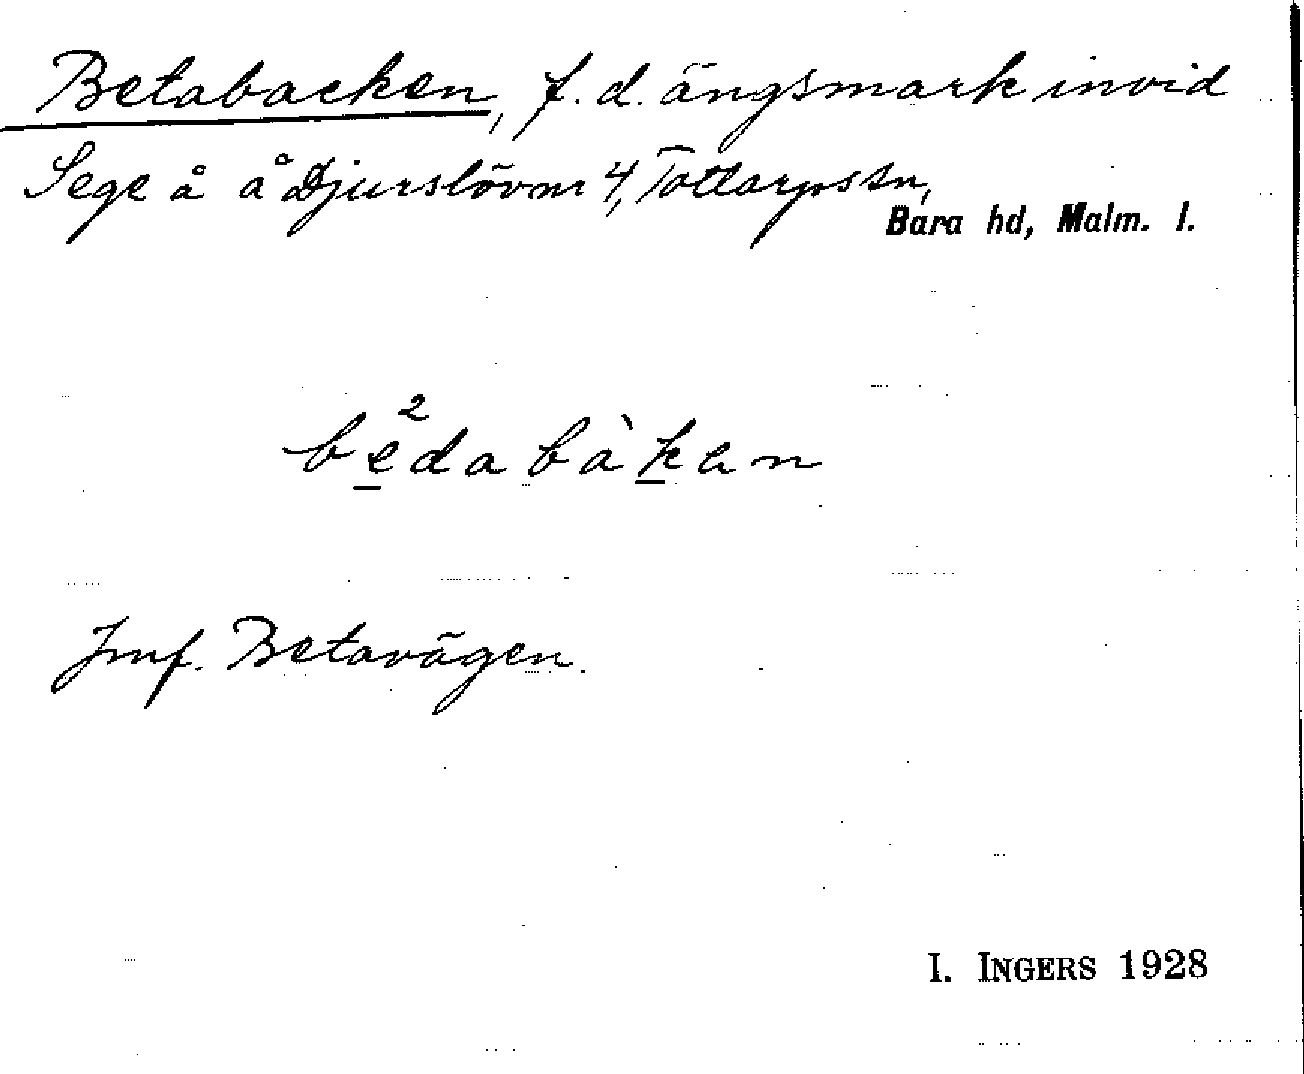 Betabacken, f.d. ängsmark invid
Sege å å Djurslöv nr 4, Tottarps sn,
Bara hd, Malm. l.
be²dabàken
Jmf. Betavägen.
I. INGERS 1928